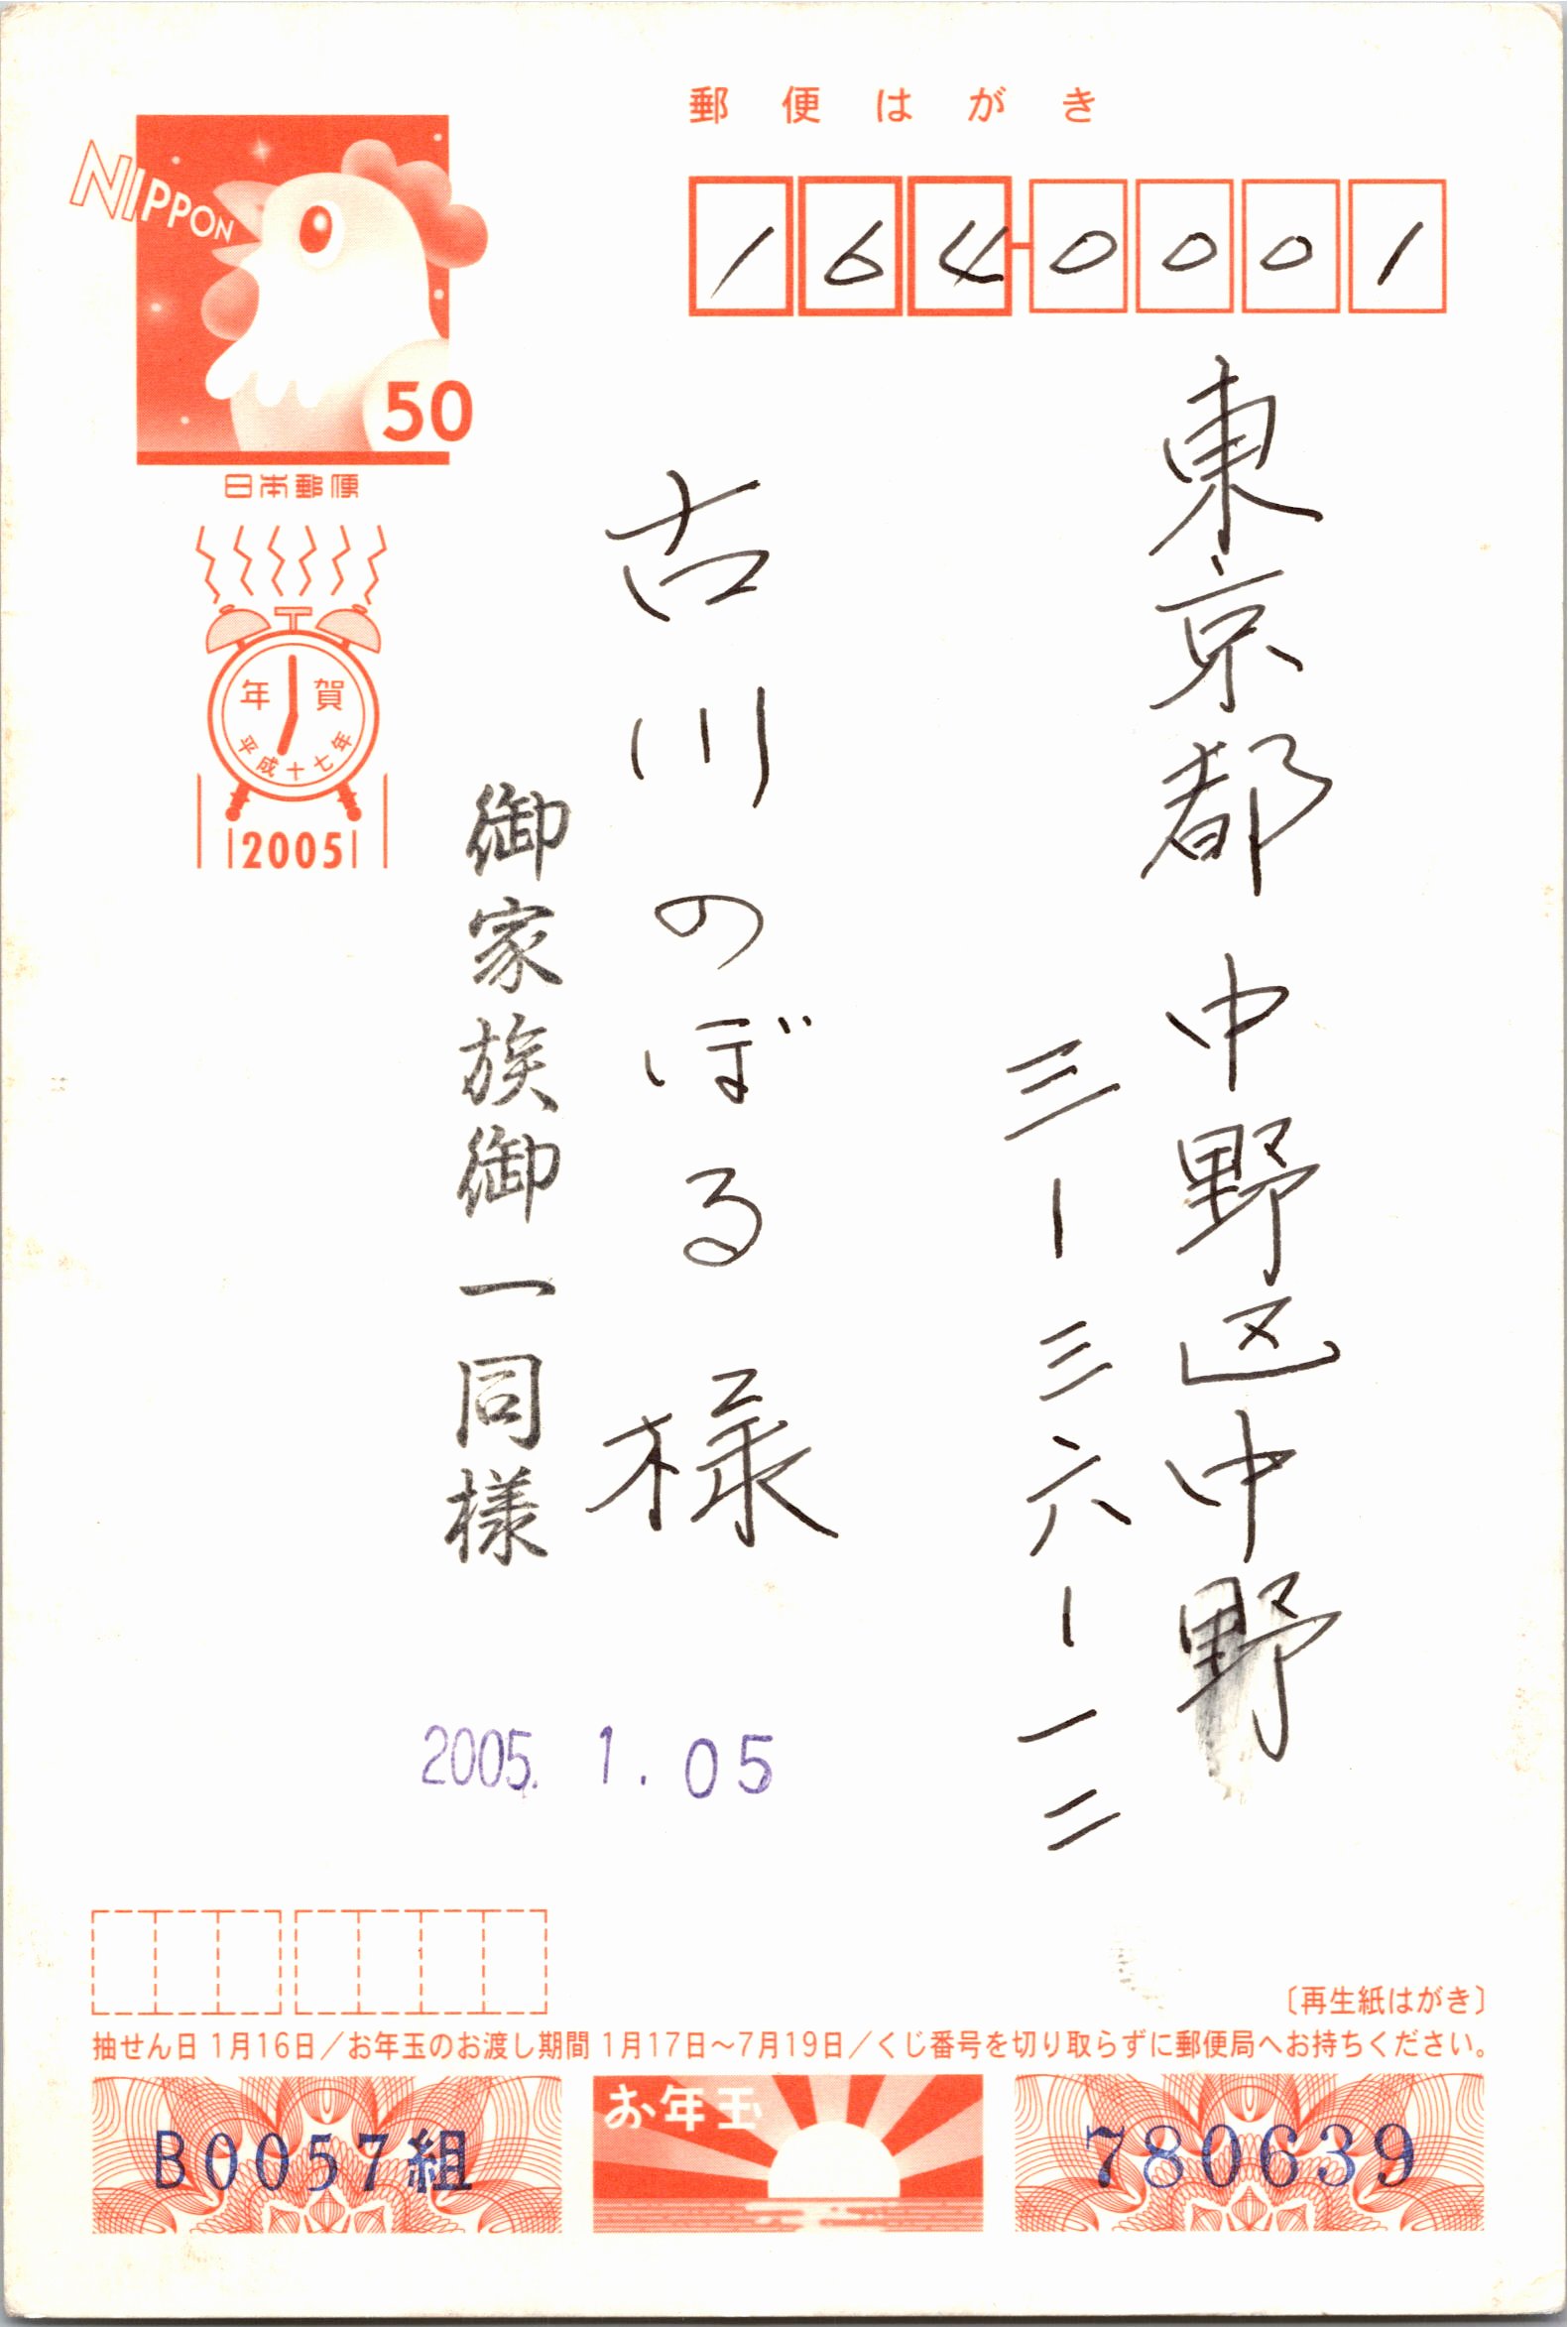 郵便はがき
NIPPON
50
日本郵便
1640001
東京都中野区中野
三ー三六ー一二
古川のぼる様
御家族御一同様
年賀
平成十七年
2005
2005. 1. 05
〔再生紙はがき〕
抽せん日 1月16日／お年玉のお渡し期間 1月17日〜7月19日／くじ番号を切り取らずに郵便局へお持ちください。
B0057組
お年玉
780639